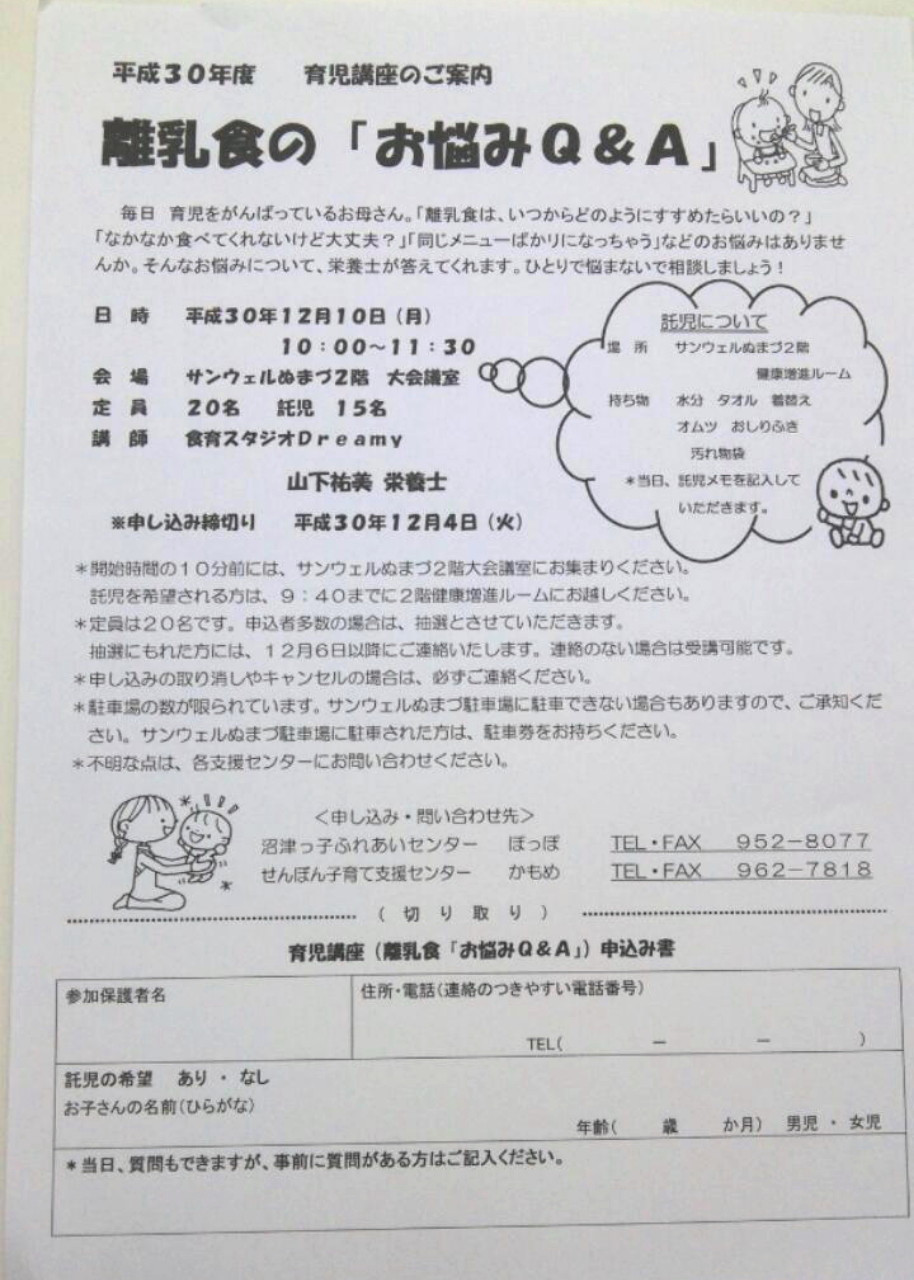 平成30年度　育児講座のご案内
離乳食の「お悩みQ&A」
毎日　育児をがんばっているお母さん。「離乳食は、いつからどのようにすすめたらいいの？」
「なかなか食べてくれないけど大丈夫？」「同じメニューばかりになっちゃう」などのお悩みはありませ
んか。そんなお悩みについて、栄養士が答えてくれます。ひとりで悩まないで相談しましょう！
日　時　平成30年12月10日（月）
10：00～11：30
会　場　サンウェルぬまづ2階　大会議室
定　員　20名　託児　15名
講　師　食育スタジオDreamy
山下祐美 栄養士
※申し込み締切り　平成30年12月4日（火）
託児について
場　所　サンウェルぬまづ2階
健康増進ルーム
持ち物　水分　タオル　着替え
オムツ　おしりふき
汚れ物袋
＊当日、託児メモを記入して
いただきます。
＊開始時間の10分前には、サンウェルぬまづ2階大会議室にお集まりください。
託児を希望される方は、9：40までに2階健康増進ルームにお越しください。
＊定員は20名です。申込者多数の場合は、抽選とさせていただきます。
抽選にもれた方には、12月6日以降にご連絡いたします。連絡のない場合は受講可能です。
＊申し込みの取り消しやキャンセルの場合は、必ずご連絡ください。
＊駐車場の数が限られています。サンウェルぬまづ駐車場に駐車できない場合もありますので、ご承知くだ
さい。サンウェルぬまづ駐車場に駐車された方は、駐車券をお持ちください。
＊不明な点は、各支援センターにお問い合わせください。
＜申し込み・問い合わせ先＞
沼津っ子ふれあいセンター　ぽっぽ　TEL・FAX　952-8077
せんぼん子育て支援センター　かもめ　TEL・FAX　962-7818
（切り取り）
育児講座（離乳食「お悩みQ&A」）申込み書
参加保護者名
住所・電話（連絡のつきやすい電話番号）
TEL（　　－　　－　　）
託児の希望　あり ・ なし
お子さんの名前（ひらがな）
年齢（　　歳　　か月）　男児 ・ 女児
＊当日、質問もできますが、事前に質問がある方はご記入ください。